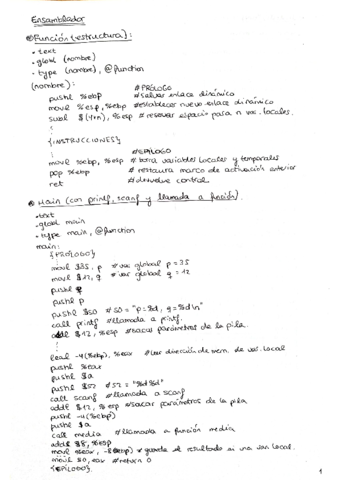 Ensamblador
Función (estructura):
.text
.globl (nombre)
.type (nombre), @function
(nombre): #PRÓLOGO
pushl %ebp #salvar enlace dinámico
movl %esp, %ebp #establecer nuevo enlace dinámico
subl $(4*n), %esp # reservar espacio para n var. locales.
{INSTRUCCIONES}
#EPÍLOGO
movl %ebp, %esp # borra variables locales y temporales
pop %ebp # restaura marco de activación anterior
ret #devuelve control
Main (con printf, scanf y llamada a función).
.text
.globl main
.type main, @function
main:
{PRÓLOGO}
movl $35, p # var global p = 35
movl $12, q # var global q = 12
pushl q
pushl p
pushl $s0 # s0 = "p=%d, q=%d\n"
call printf #llamada a printf.
addl $12, %esp #sacar parámetros de la pila.
leal -4(%ebp), %eax # leer dirección de mem. de var. local
pushl %eax
pushl $a
pushl $s2 # s2 = "%d %d"
call scanf #llamada a scanf
addl $12, %esp #sacar parámetros de la pila
pushl -4(%ebp)
pushl $a
call media #llamada a función media
addl $8, %esp
movl %eax, -8(%ebp) # guarda el resultado en una var local.
movl $0, eax #return 0
{EPÍLOGO}
1